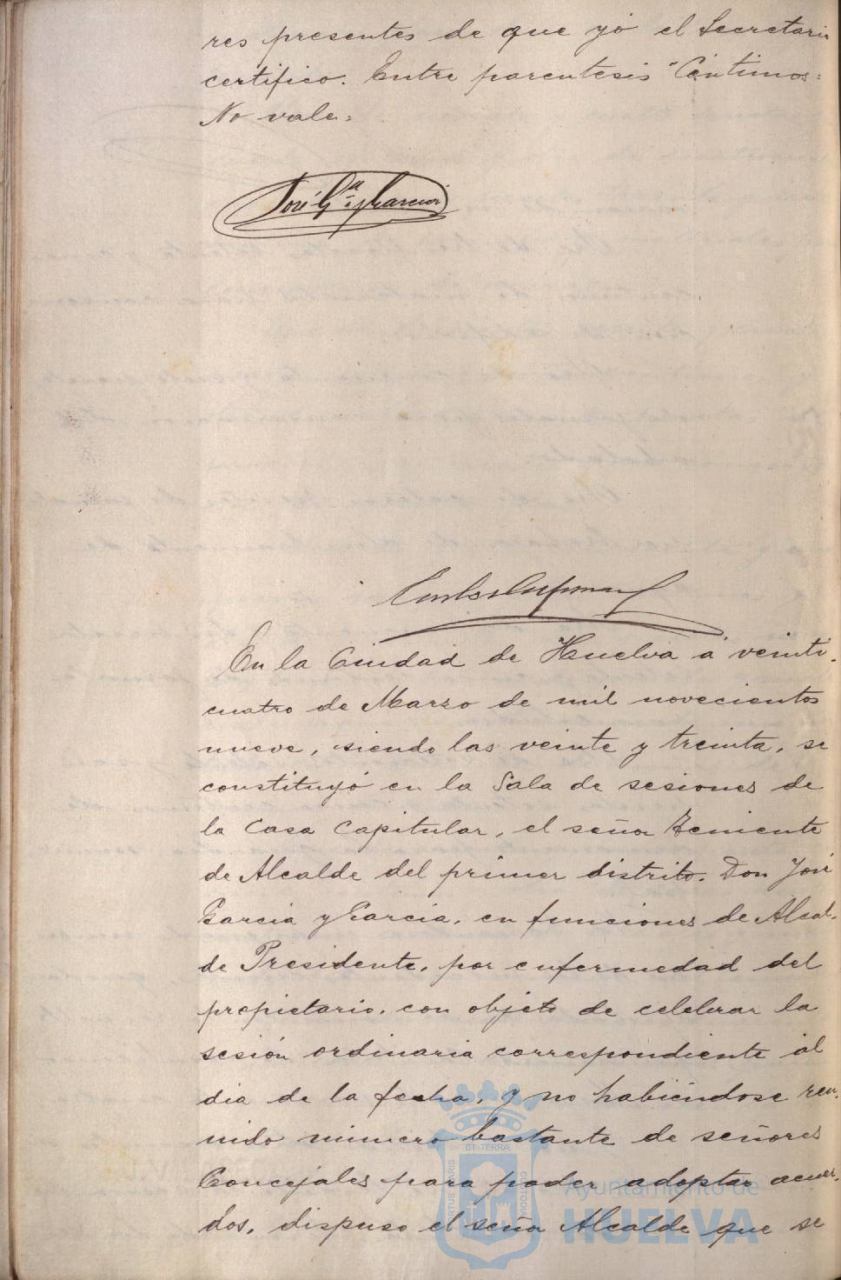 res presentes de que yó el Secretario
certifico. Entre parentesis "Céntimos=
No vale=
José Gª y Garcia
En la Ciudad de Huelva á veinti-
cuatro de Marzo de mil novecientos
nueve, siendo las veinte y treinta, se
constituyó en la Sala de sesiones de
la Casa Capitular, el señor Teniente
de Alcalde del primer distrito. Don José
Garcia y Garcia, en funciones de Alcal-
de Presidente, por enfermedad del
propietario, con objeto de celebrar la
sesión ordinaria correspondiente al
dia de la fecha, y no habiéndose reu-
nido número bastante de señores
Concejales para poder adoptar acuer-
dos, dispuso el señor Alcalde que se
Ayuntamiento de
HUELVA